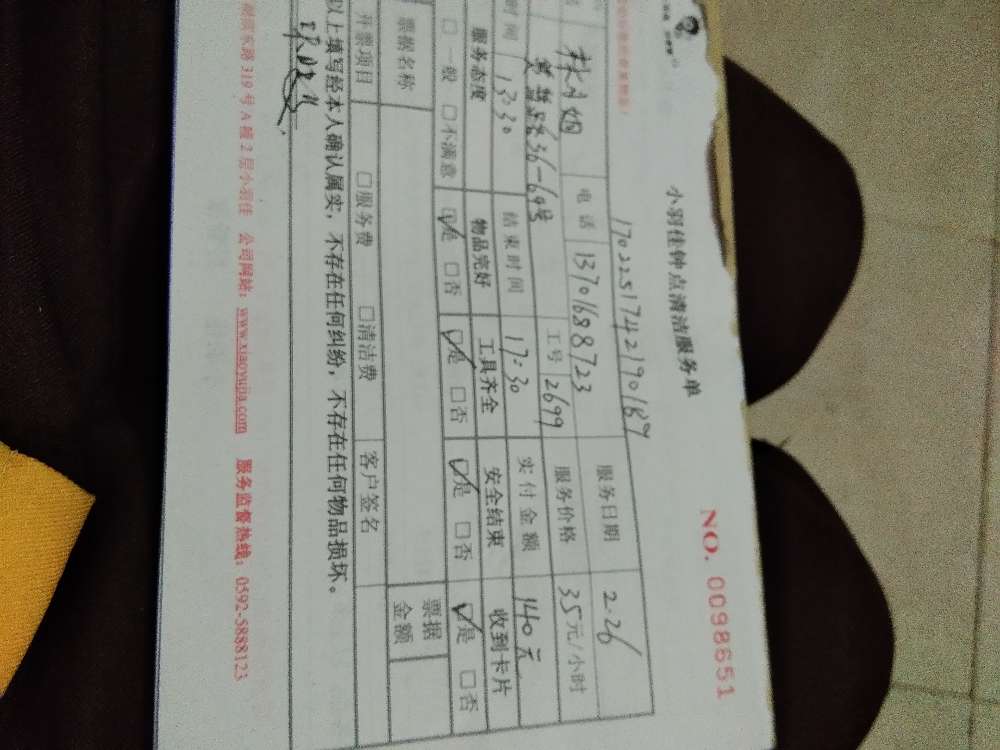 小羽佳钟点清洁服务单
NO. 0098651
1702251742190189
电话 13701688723 服务日期 2-26
36-64号 工号 2699 服务价格 35元/小时
时间 13:30 结束时间 17:30 实付金额 140元
服务态度 物品完好 工具齐全 安全结束 收到卡片
□一般 □不满意 ☑是 □否 ☑是 □否 ☑是 □否 ☑是 □否
票据名称 票据金额
开票项目 □服务费 □清洁费 客户签名
以上填写经本人确认属实，不存在任何纠纷，不存在任何物品损坏。
东路319号A幢2层小羽佳 公司网站：www.xiaoyujia.com 服务监督热线：0592-5888123